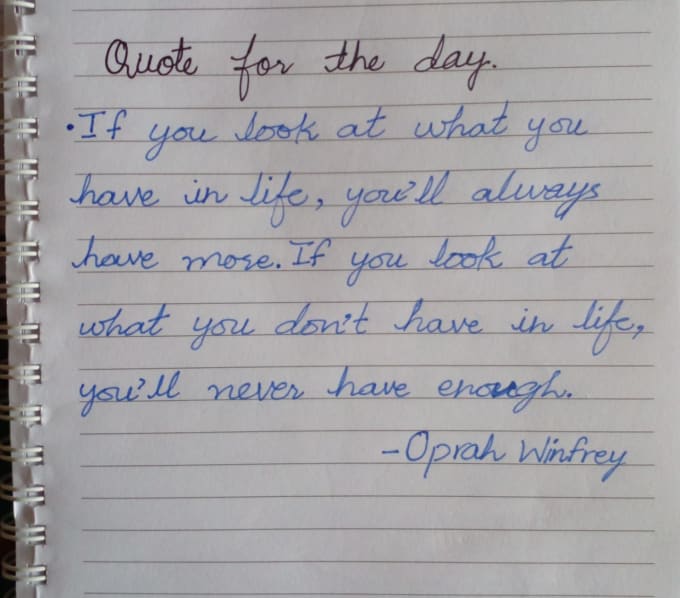 Quote for the day.
•If you look at what you
have in life, you'll always
have more. If you look at
what you don't have in life,
you'll never have enough.
-Oprah Winfrey